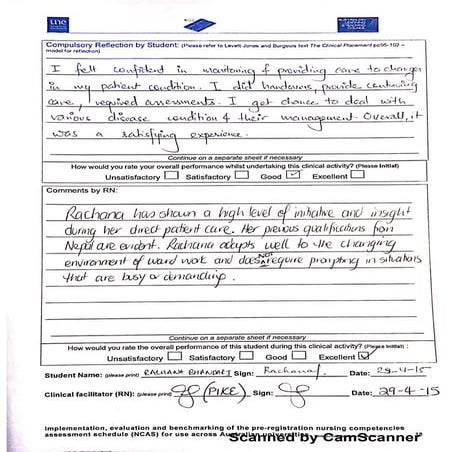 une
Compulsory Reflection by Student: (Please refer to Levett-Jones and Burgeurs text The Clinical Placement pp95-102 – model for reflection)
I felt confident in monitoring & providing care to changes
in my patient condition. I did handovers, provide continuing
care, required assessments. I get chance to deal with
various disease condition & their management. Overall, it
was a satisfying experience.
Continue on a separate sheet if necessary
How would you rate your overall performance whilst undertaking this clinical activity? (Please Initial)
Unsatisfactory Satisfactory Good ✓ Excellent
Comments by RN:
Rachana has shown a high level of initiative and insight
during her direct patient care. Her previous qualifications from
Nepal are evident. Rachana adapts well to the changing
environment of ward work and does NOT require prompting in situations
that are busy or demanding.
Continue on a separate sheet if necessary
How would you rate the overall performance of this student during this clinical activity? (Please Initial)
Unsatisfactory Satisfactory Good Excellent ✓
Student Name: (please print) RACHANA BHANDARI Sign: Rachana Date: 29-4-15
Clinical facilitator (RN): (please print) (PIKE) Sign: Date: 29-4-15
Implementation, evaluation and benchmarking of the pre-registration nursing competencies
assessment schedule (NCAS) for use across Australian universities
Scanned by CamScanner